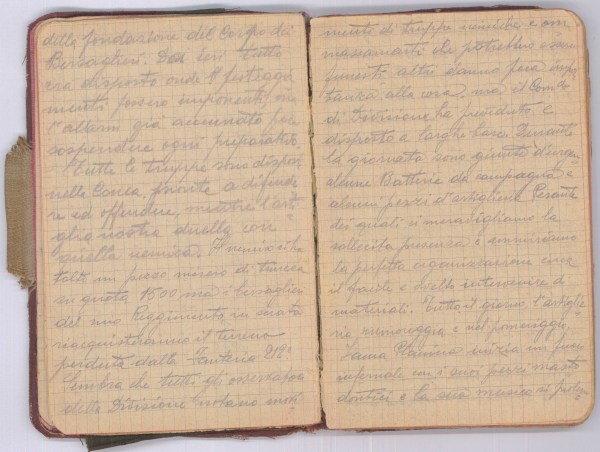 della fondazione del Corpo dei
Bersaglieri. Da ieri tutto
era disposto onde i festeggia
menti fossero imponenti, ma
l'allarmi già accennato fa
sospendere ogni preparativo.
Tutte le truppe sono disposte
nella Conca, pronte a difende
re ed offendere, mentre l'arti
glia nostra duella con
quella nemica. Il nemico ci ha
tolto un pezzo di trincea
su quota 1600 ma i bersaglieri
del mio Reggimento in serata
riacquisteranno il terreno
perduto dalla Fanteria 212º
Sembra che tutti gli osservatori
della Divisione notano movi
menti di truppe nemiche e am
massamenti che potrebbero essere
altri danno poca impor
tanza alla cosa, ma il Comdo
di Divisione ha preveduto e
disposto a larghe base. Durante
la giornata sono giunte d'urgenza
alcune Batterie da campagna e
alcuni pezzi d'artiglieria Pesante
dei quali ci meravigliamo la
sollecita presenza e ammiriamo
la perfetta organizzazione circa
il facile e svelto
materiali. Tutto il giorno l'artiglie
ria rumoreggia e nel pomeriggio,
inizia un fuoco
infernale con i suoi pezzi masto
dontici e la sua musica ci